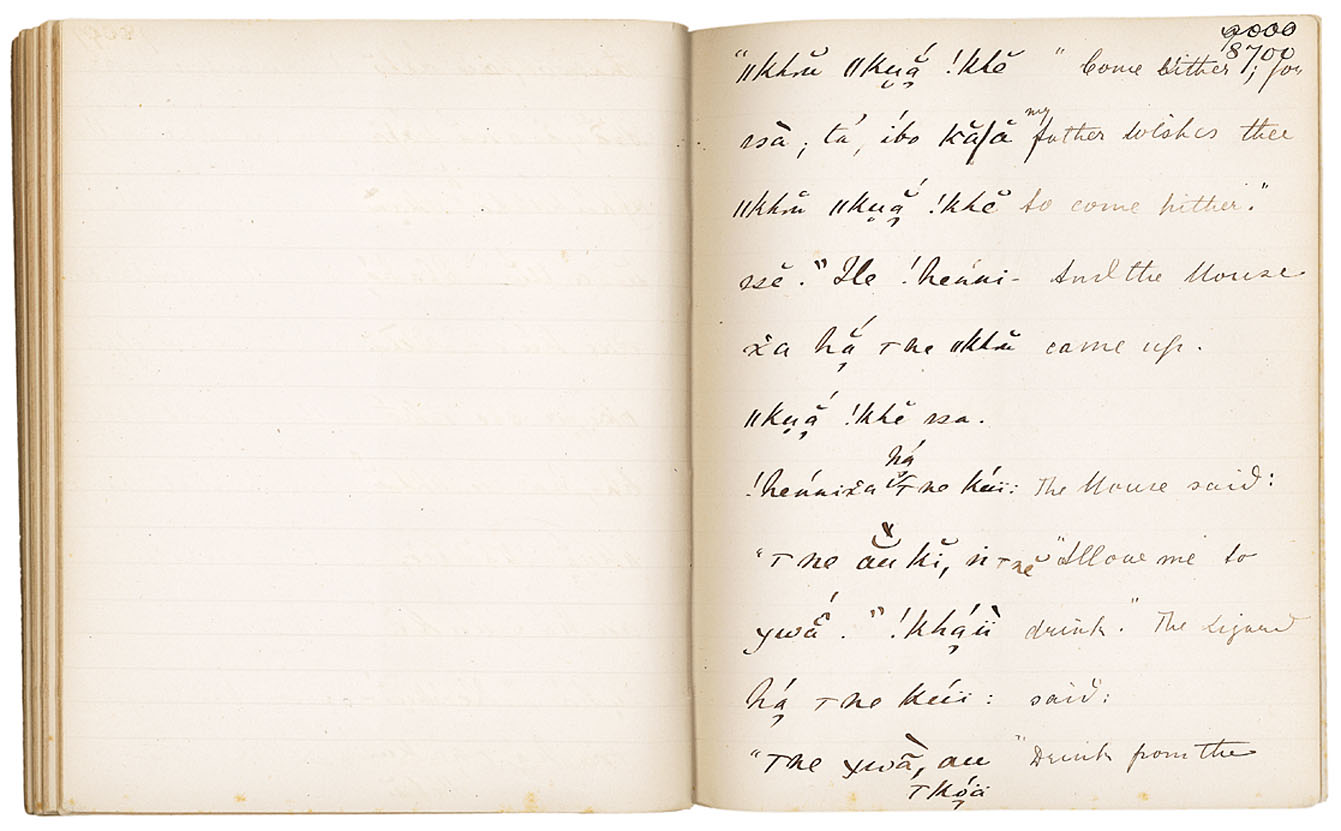 9000
8700
"ǁkhŭ ǁku̯ắ̦ !khĕ " Come hither; for
ssà; tá, íbo kă/ă my father wishes thee
ǁkhŭ ǁku̯ắ̦ !khĕ to come hither."
ssĕ." He !heṅni- And the Mouse
ẋa hắ̦ ⊤ne ǁkhŭ came up.
ǁku̯ắ̦ !khĕ ssa.
!heṅniẋa há̦ ⊤ne kúi: The Mouse said:
"⊤ne ău kĭ, ṅ ⊤nĕ "Allow me to
χwā́." !khá̦ù drink." The Lizard
há̦ ⊤ne kúi: said:
"⊤ne χwā̀, au "Drink from the
⊤kó̦ä